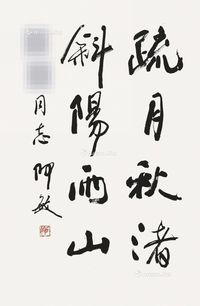 疏月秋渚
斜陽雨山
同志 阿敏